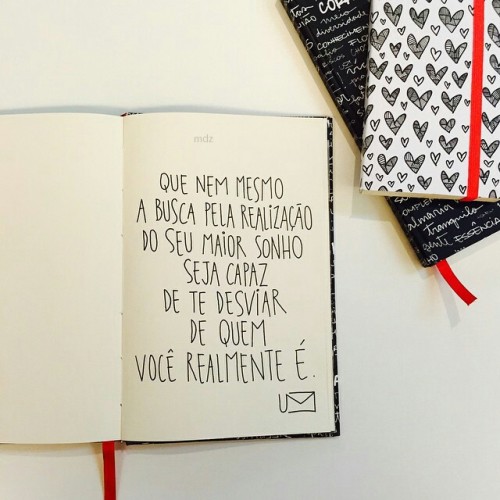 mdz
QUE NEM MESMO
A BUSCA PELA REALIZAÇÃO
DO SEU MAIOR SONHO
SEJA CAPAZ
DE TE DESVIAR
DE QUEM
VOCÊ REALMENTE É.
U
diversidade
CONHECIMEN
almaria
tranquila
ESSÊNCIA